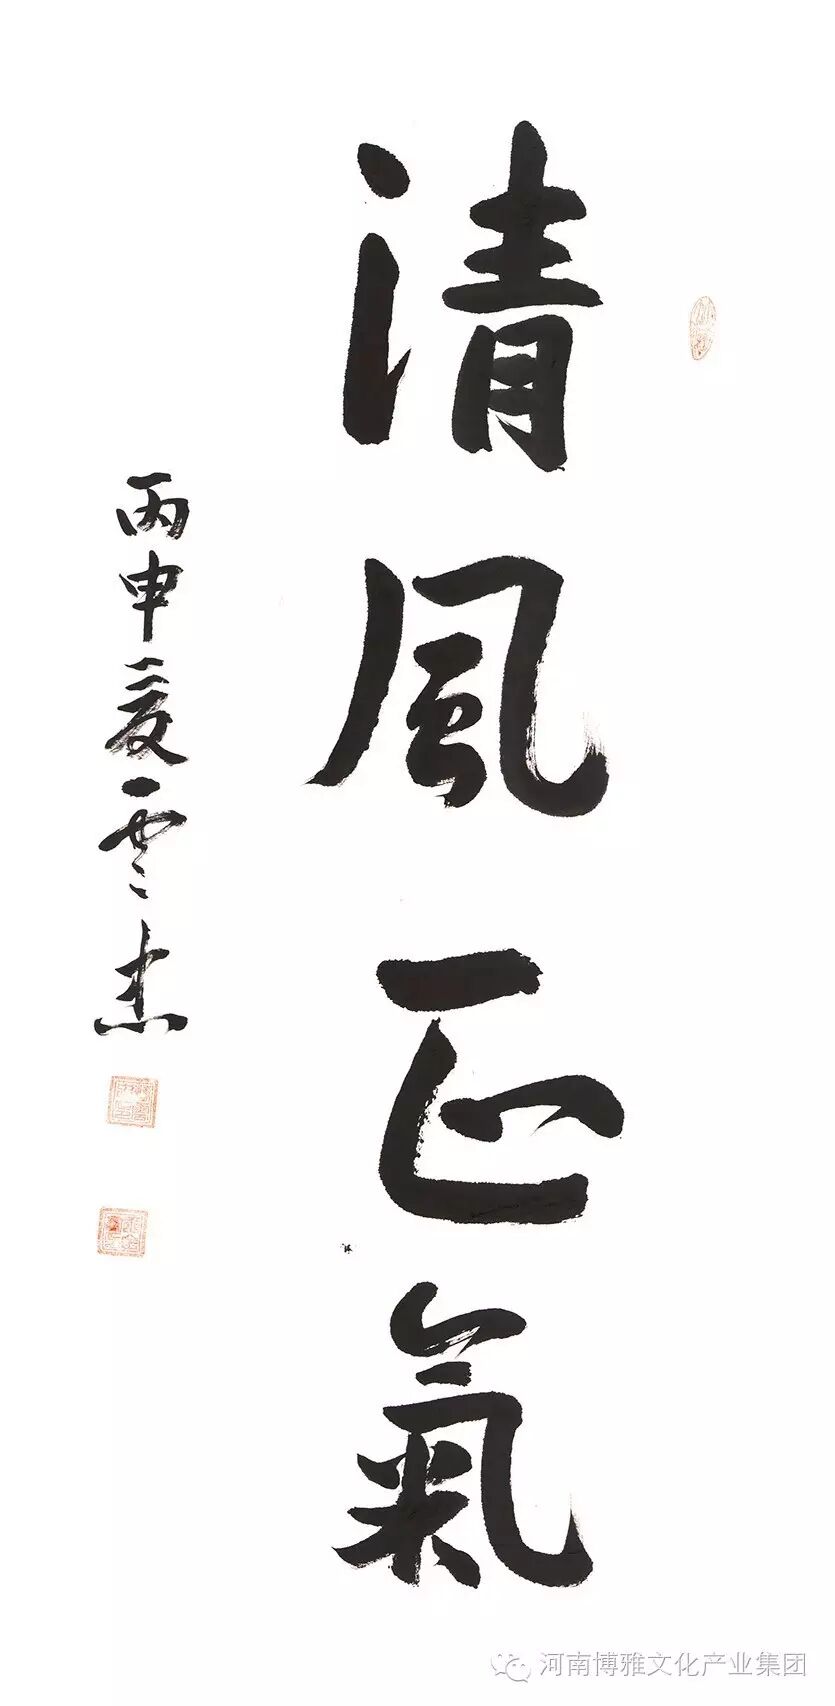 清風正氣
丙申夏雲杰
河南博雅文化产业集团